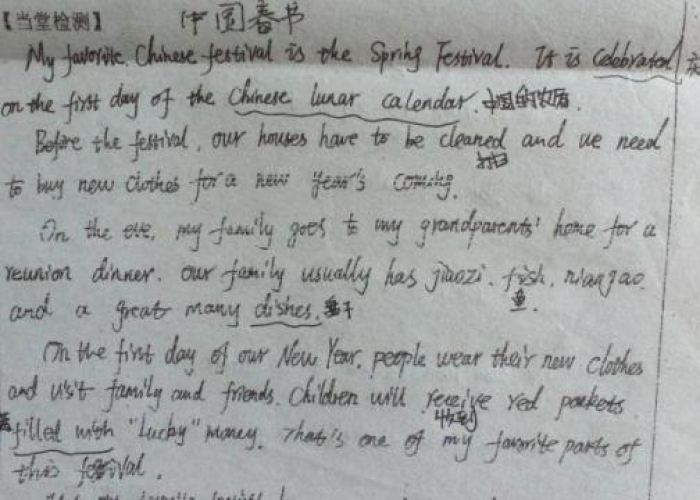 【当堂检测】 中国春节
My favorite Chinese festival is the Spring Festival. It is Celebrated
on the first day of the Chinese lunar calendar. 中国的农历.
Before the festival, our houses have to be cleaned and we need
打扫
to buy new clothes for a new year's coming.
On the eve, my family goes to my grandparents' home for a
reunion dinner. Our family usually has jiaozi. fish. niangao.
鱼.
and a great many dishes.
On the first day of our New Year, people wear their new clothes
and visit family and friends. Children will receive red pockets
收到
filled with "Lucky" money. That's one of my favorite parts of
this festival.